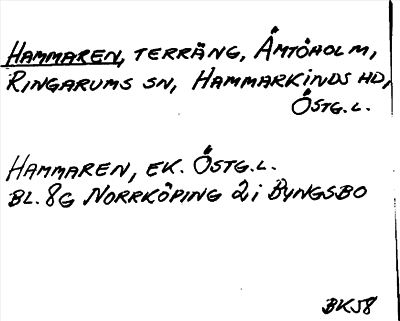 HAMMAREN, TERRÄNG, ÅMTÖHOLM,
RINGARUMS SN, HAMMARKINDS HD,
ÖSTG.L.
HAMMAREN, EK. ÖSTG.L.
BL. 8G NORRKÖPING 2i BYNGSBO
BK58